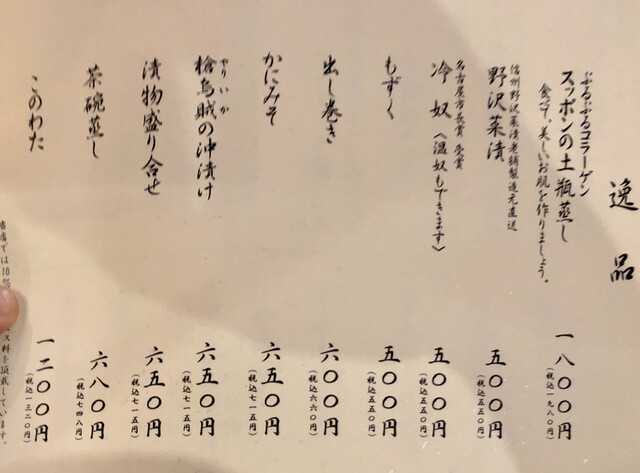 逸品
ぷるぷるコラーゲン
スッポンの土瓶蒸し
食べて、美しいお肌を作りましょう。
一八〇〇円
(税込一九八〇円)
信州野沢菜漬老舗製造元直送
野沢菜漬
五〇〇円
(税込五五〇円)
名古屋市長賞 受賞
冷奴〈温奴もできます〉
五〇〇円
(税込五五〇円)
もずく
五〇〇円
(税込五五〇円)
出し巻き
六〇〇円
(税込六六〇円)
かにみそ
六五〇円
(税込七一五円)
やりいか
槍烏賊の沖漬け
六五〇円
(税込七一五円)
漬物盛り合せ
六五〇円
(税込七一五円)
茶碗蒸し
六八〇円
(税込七四八円)
このわた
一二〇〇円
(税込一三二〇円)
当店では10%
ス料を頂戴しています。